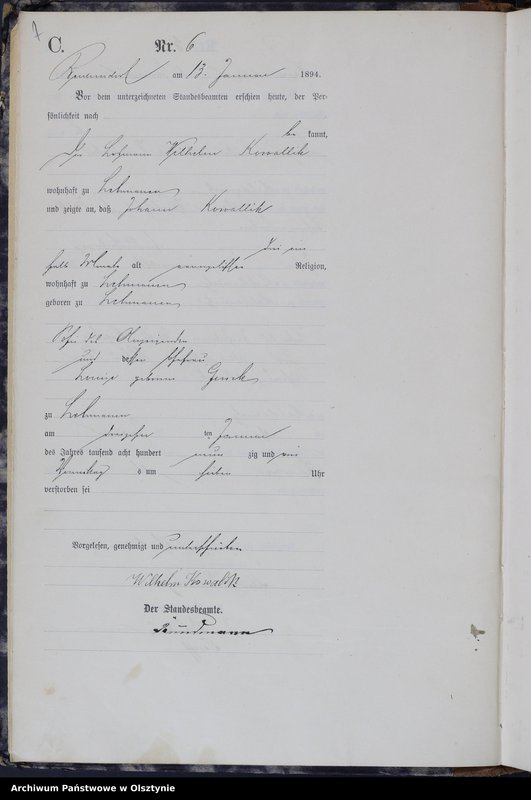 C. Nr. 6
am 13. Januar 1894.
Vor dem unterzeichneten Standesbeamten erschien heute, der Per-
sönlichkeit nach
be kannt,
Wilhelm Kowallik
wohnhaft zu
und zeigte an, daß Johann Kowallik
drei ein
halb Monate alt evangelischer Religion,
wohnhaft zu
geboren zu
Sohn des Anzeigenden
und dessen Ehefrau
Louise geborene
zu
am dreizehn ten Januar
des Jahres tausend acht hundert neun zig und vier
Vormittag s um sieben Uhr
verstorben sei
Vorgelesen, genehmigt und unterschrieben
Wilhelm Kowallik
Der Standesbeamte.
Archiwum Państwowe w Olsztynie